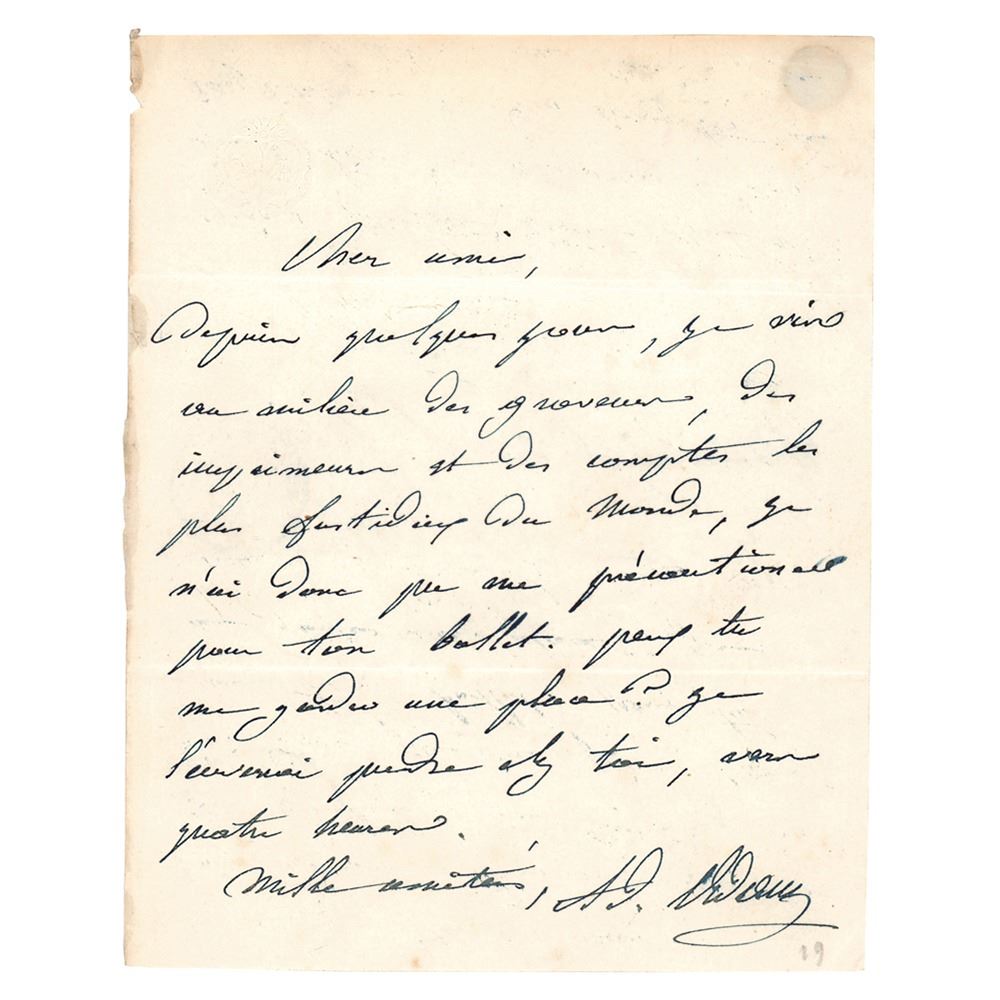 Cher ami,
Depuis quelques jours, je vis
au milieu des graveurs, des
imprimeurs et des comptes les
plus fastidieux du monde, je
n'ai donc pu me précautionner
pour ton ballet. peux tu
me garder une place? je
l'enverrai prendre chez toi, vers
quatre heures.
Mille amitiés, Ad.
19